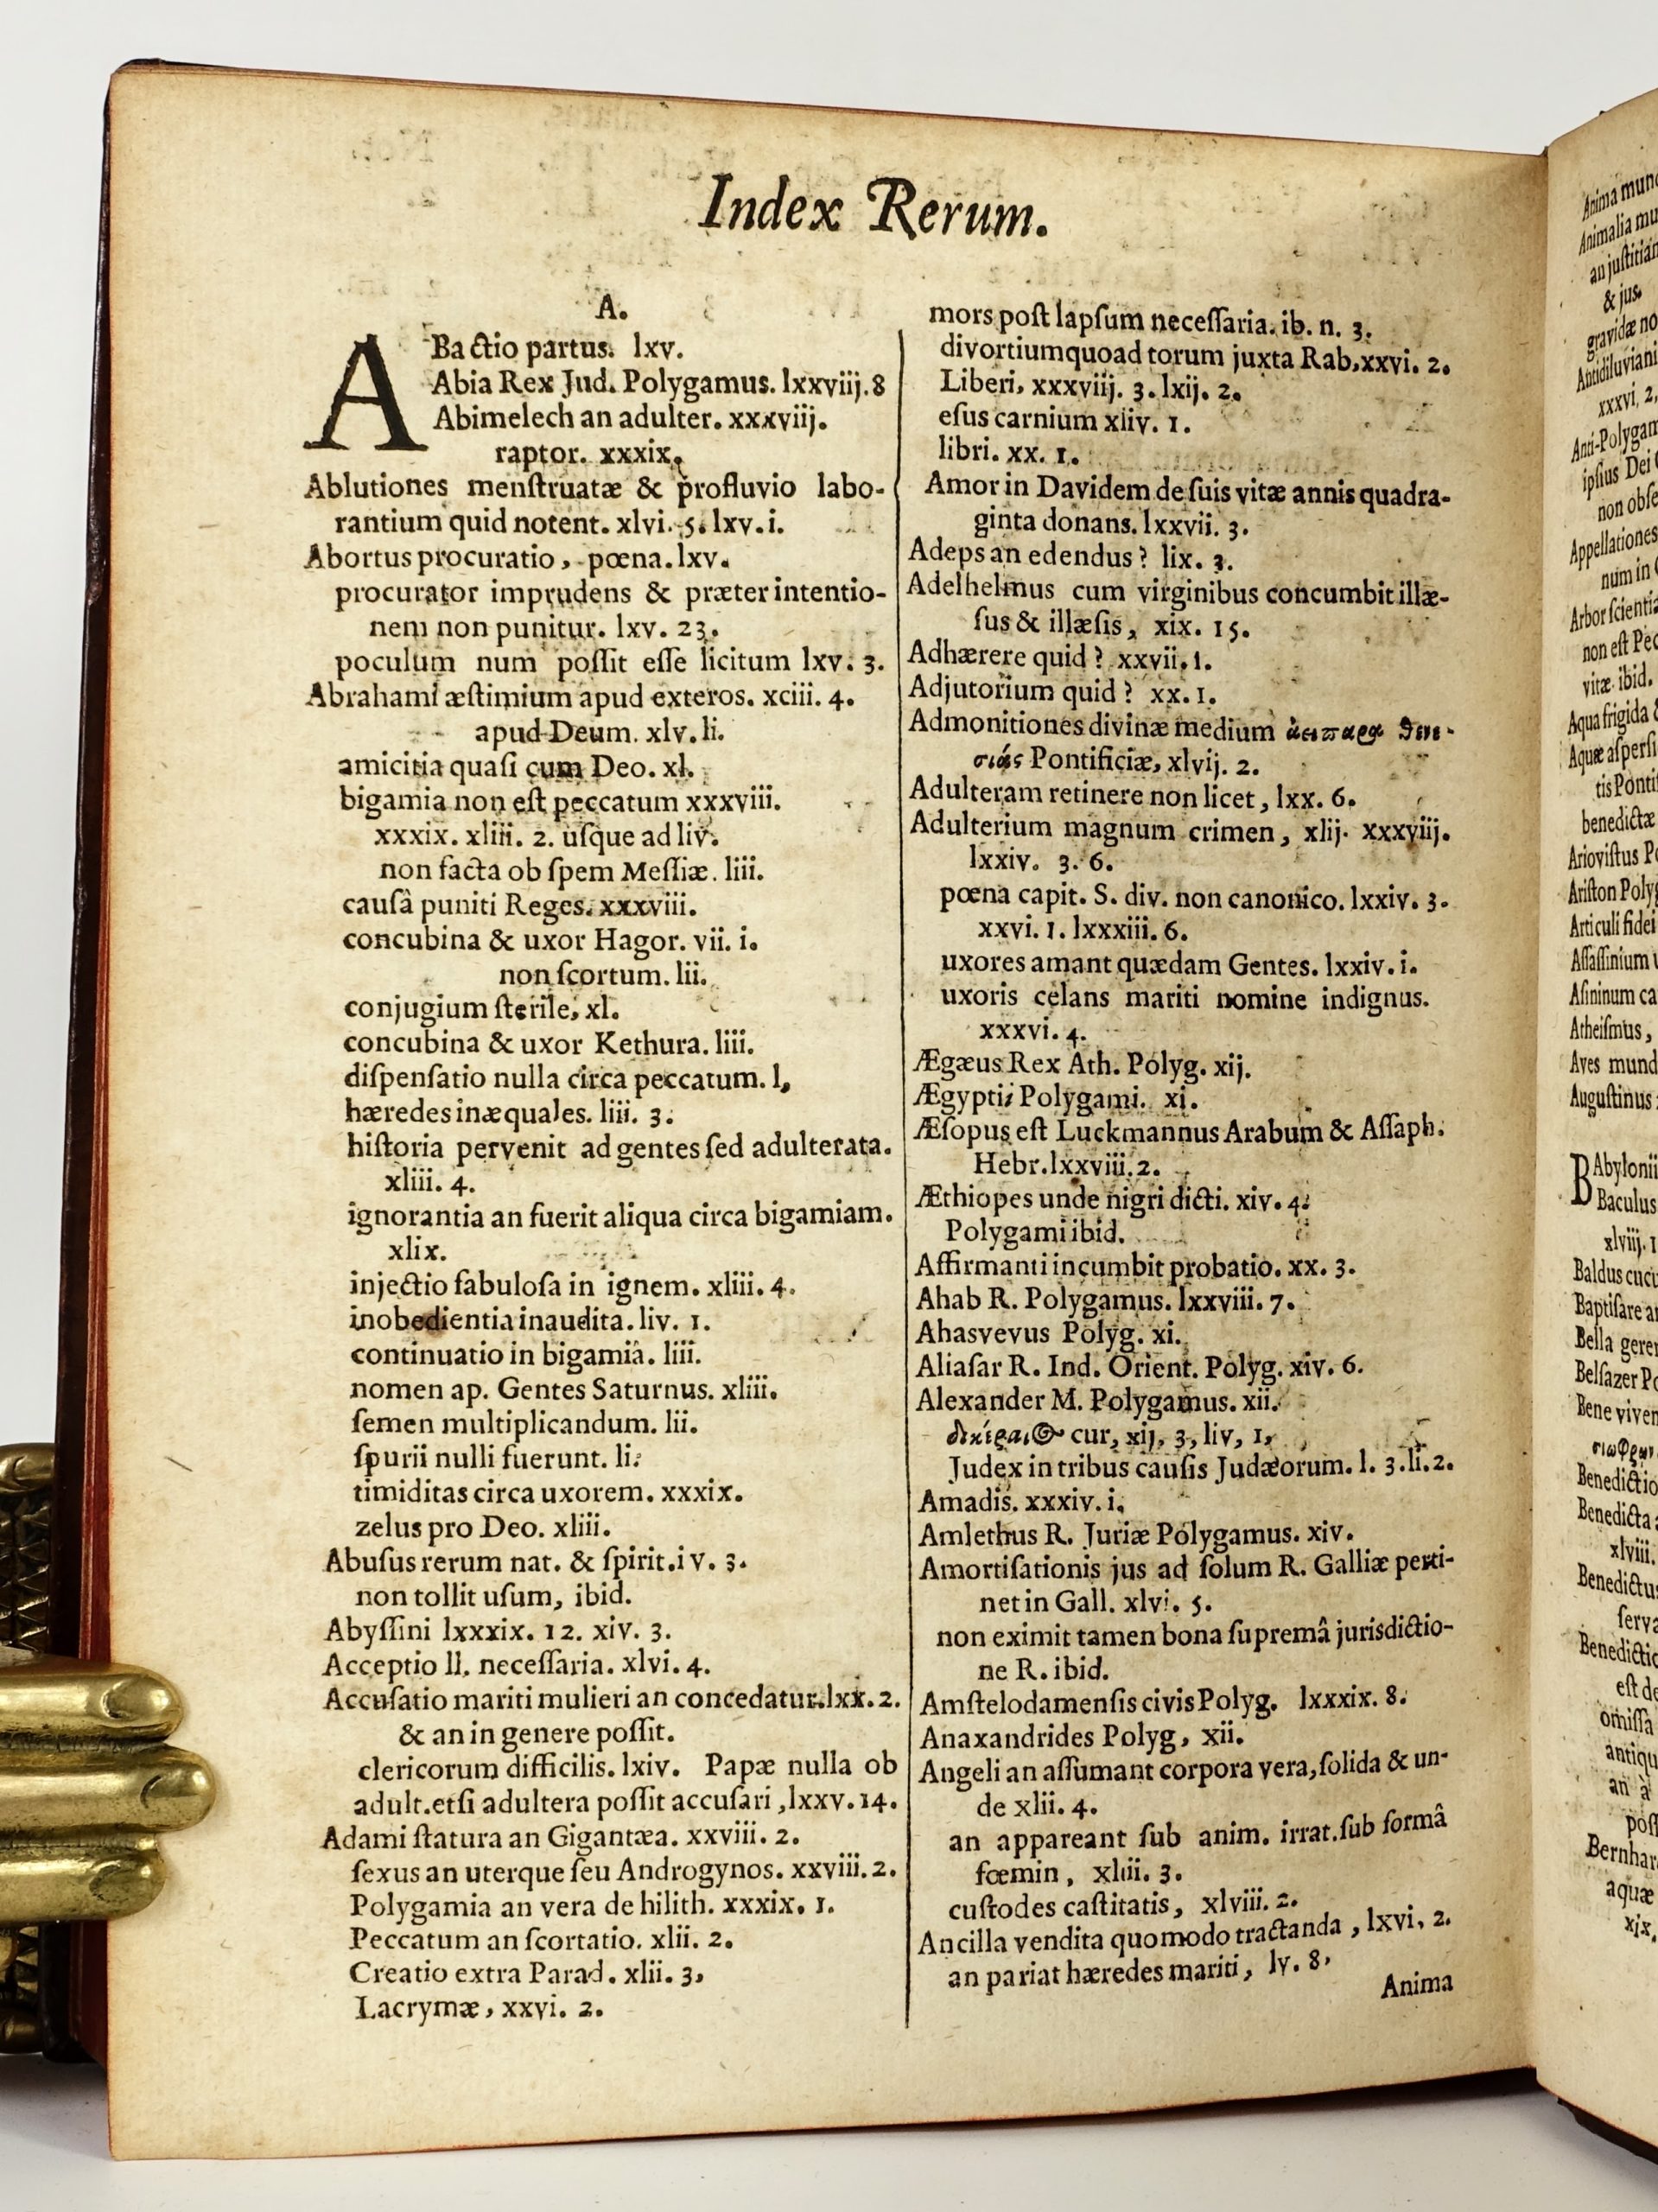 Index Rerum.
A.
ABactio partus. lxv.
Abia Rex Jud. Polygamus. lxxviij. 8
Abimelech an adulter. xxxviij.
raptor. xxxix.
Ablutiones menſtruatæ & profluvio labo-
rantium quid notent. xlvi. 5. lxv. i.
Abortus procuratio, pœna. lxv.
procurator imprudens & præter intentio-
nem non punitur. lxv. 23.
poculum num poſſit eſſe licitum lxv. 3.
Abrahami æſtimium apud exteros. xciii. 4.
apud Deum. xlv. li.
amicitia quaſi cum Deo. xl.
bigamia non eſt peccatum xxxviii.
xxxix. xliii. 2. uſque ad liv.
non facta ob ſpem Meſſiæ. liii.
cauſâ puniti Reges. xxxviii.
concubina & uxor Hagor. vii. i.
non ſcortum. lii.
conjugium ſterile, xl.
concubina & uxor Kethura. liii.
diſpenſatio nulla circa peccatum. l,
hæredes inæquales. liii. 3.
hiſtoria pervenit ad gentes ſed adulterata.
xliii. 4.
ignorantia an fuerit aliqua circa bigamiam.
xlix.
injectio fabuloſa in ignem. xliii. 4.
inobedientia inaudita. liv. 1.
continuatio in bigamiâ. liii.
nomen ap. Gentes Saturnus. xliii.
ſemen multiplicandum. lii.
ſpurii nulli fuerunt. li.
timiditas circa uxorem. xxxix.
zelus pro Deo. xliii.
Abuſus rerum nat. & ſpirit. iv. 3.
non tollit uſum, ibid.
Abyſſini lxxxix. 12. xiv. 3.
Acceptio ll. neceſſaria. xlvi. 4.
Accuſatio mariti mulieri an concedatur. lxx. 2.
& an in genere poſſit.
clericorum difficilis. lxiv. Papæ nulla ob
adult. etſi adultera poſſit accuſari, lxxv. 14.
Adami ſtatura an Gigantæa. xxviii. 2.
ſexus an uterque ſeu Androgynos. xxviii. 2.
Polygamia an vera de hilith. xxxix. 1.
Peccatum an ſcortatio. xlii. 2.
Creatio extra Parad. xlii. 3,
Lacrymæ, xxvi. 2.
mors poſt lapſum neceſſaria. ib. n. 3.
divortium quoad torum juxta Rab. xxvi. 2.
Liberi, xxxviij. 3. lxij. 2.
eſus carnium xliv. 1.
libri. xx. 1.
Amor in Davidem de ſuis vitæ annis quadra-
ginta donans. lxxvii. 3.
Adeps an edendus? lix. 3.
Adelhelmus cum virginibus concumbit illæ-
ſus & illæſis, xix. 15.
Adhærere quid? xxvii. 1.
Adjutorium quid? xx. 1.
Admonitiones divinæ medium
Pontificiæ, xlvij. 2.
Adulteram retinere non licet, lxx. 6.
Adulterium magnum crimen, xlij. xxxviij.
lxxiv. 3. 6.
pœna capit. S. div. non canonico. lxxiv. 3.
xxvi. 1. lxxxiii. 6.
uxores amant quædam Gentes. lxxiv. i.
uxoris celans mariti nomine indignus.
xxxvi. 4.
Ægæus Rex Ath. Polyg. xij.
Ægyptii Polygami. xi.
Æſopus eſt Luckmannus Arabum & Aſſaph.
Hebr. lxxviii. 2.
Æthiopes unde nigri dicti. xiv. 4.
Polygami ibid.
Affirmanti incumbit probatio. xx. 3.
Ahab R. Polygamus. lxxviii. 7.
Ahasvevus Polyg. xi.
Aliaſar R. Ind. Orient. Polyg. xiv. 6.
Alexander M. Polygamus. xii.
cur, xij, 3, liv, 1,
Judex in tribus cauſis Judæorum. l. 3. li. 2.
Amadis. xxxiv. i.
Amlethus R. Juriæ Polygamus. xiv.
Amortiſationis jus ad ſolum R. Galliæ perti-
net in Gall. xlvi. 5.
non eximit tamen bona ſupremâ jurisdictio-
ne R. ibid.
Amſtelodamenſis civis Polyg. lxxxix. 8.
Anaxandrides Polyg, xii.
Angeli an aſſumant corpora vera, ſolida & un-
de xlii. 4.
an appareant ſub anim. irrat. ſub formâ
fœmin, xliii. 3.
cuſtodes caſtitatis, xlviii. 2.
Ancilla vendita quomodo tractanda, lxvi, 2.
an pariat hæredes mariti, lv. 8.
Anima
Anima
Animalia
& jus.
gravidæ
Antidiluviani
xxxvi, 2,
ipſius Dei
Appellationes
num in
non eſt
vitæ ibid.
Aqua frigida
benedictæ
Arioviſtus
Ariſton
Articuli fidei
Aſſaſſinium
Aſininum
Atheiſmus,
Aves
Auguſtinus
Baculus
Baldus
Baptiſare
Bella
Belſazer
Bene
xlviii.
omiſſa
an à
aquæ
xix.